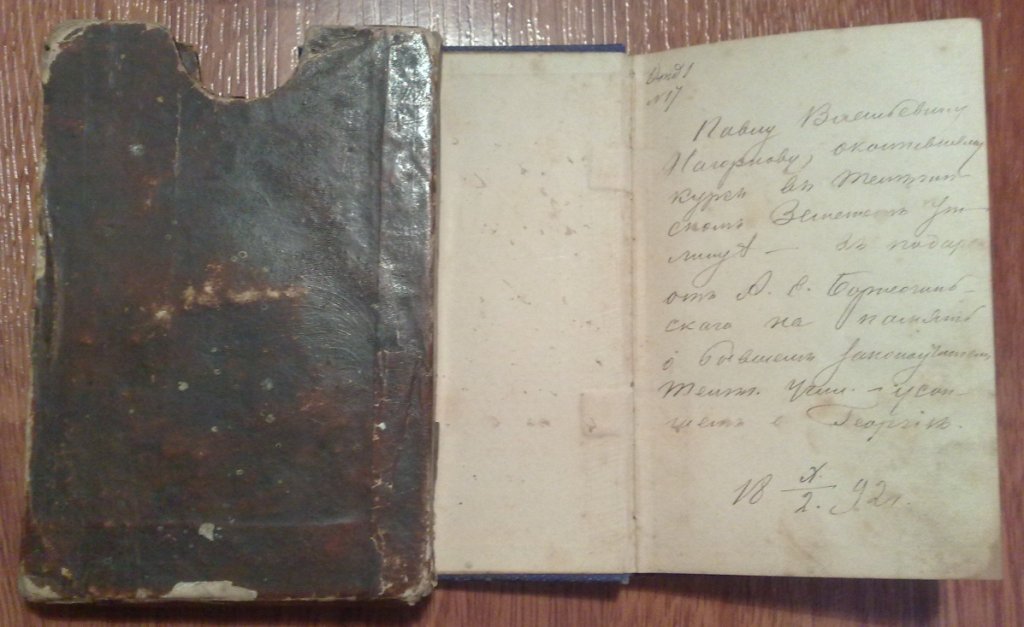 Отд 1
№ 17
Павлу Васильевичу
Нагорнову, окончившему
курсъ въ
скомъ Земскомъ Учи-
лищѣ — въ подарокъ
отъ А. С.
скаго на память
о бывшемъ законоучителѣ
Учил. – усоп-
шемъ о Георгіѣ.
18 X/2. 92 г.